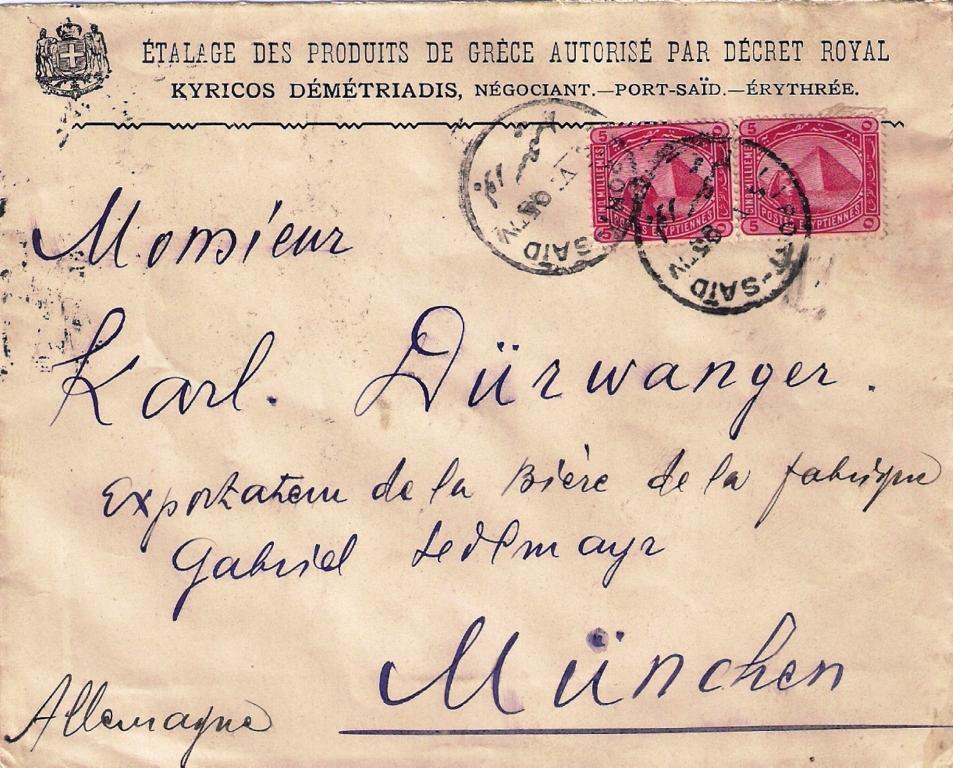 ÉTALAGE DES PRODUITS DE GRÈCE AUTORISÉ PAR DÉCRET ROYAL
KYRICOS DÉMÉTRIADIS, NÉGOCIANT.—PORT-SAÏD.—ÉRYTHRÉE.
5 5
CINQ MILLIEMES
POSTES EGYPTIENNES
PORT-SAÏD
95
Monsieur
Karl. Dürwanger.
Exportateur de la Bière de la fabrique
Gabriel Sedlmayr
München
Allemagne